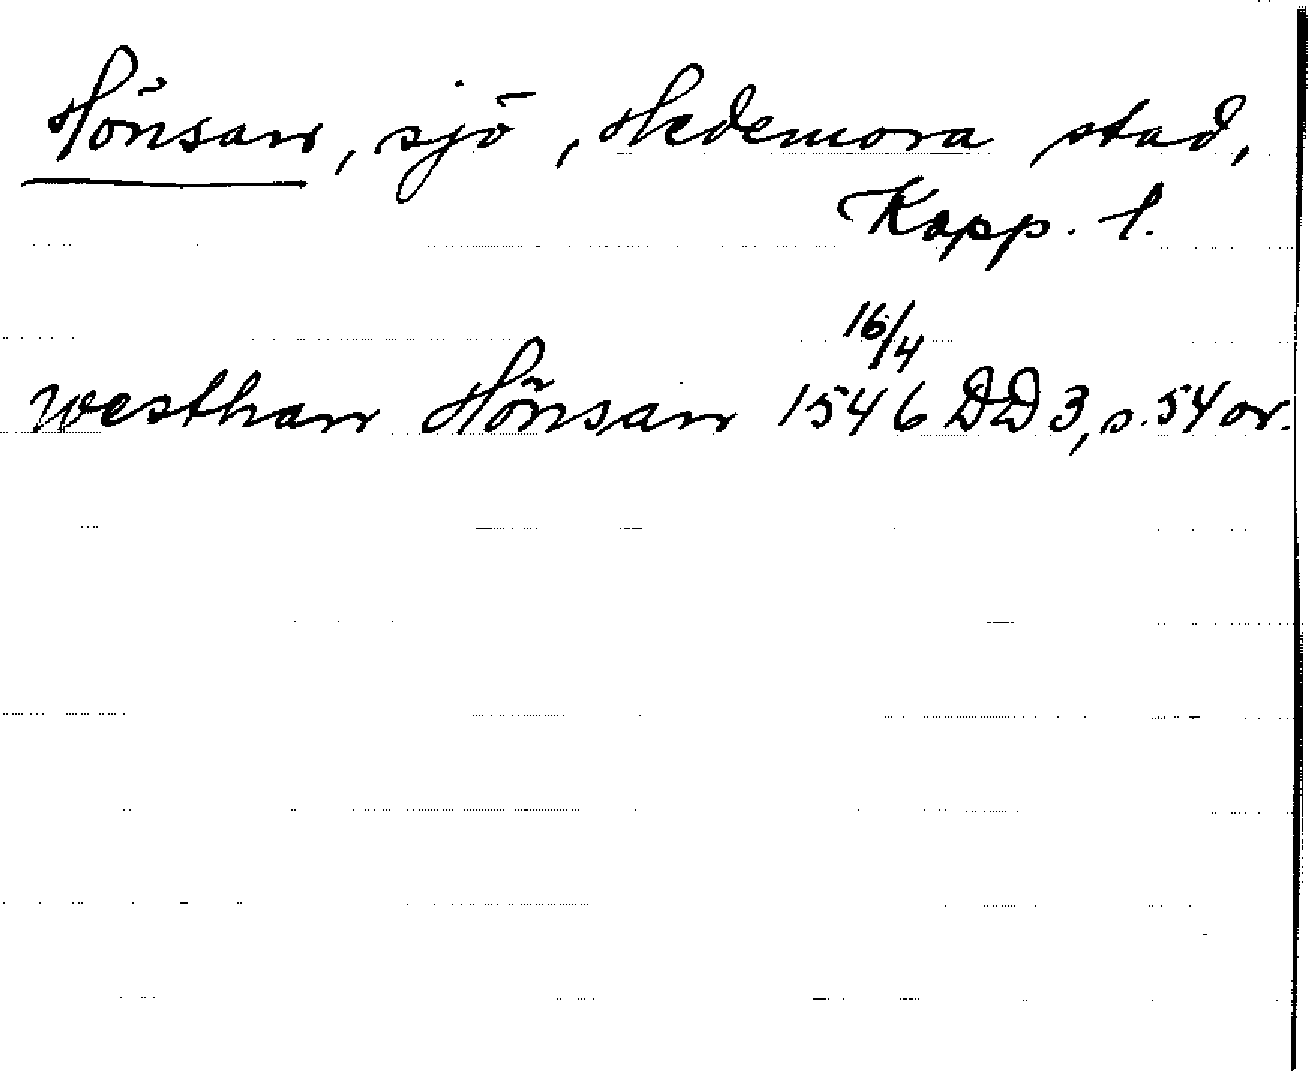 Hönsan, sjö, Hedemora stad,
Kopp. l.
westhan Hönsan 16/4 1546 DD 3, s. 54 or.